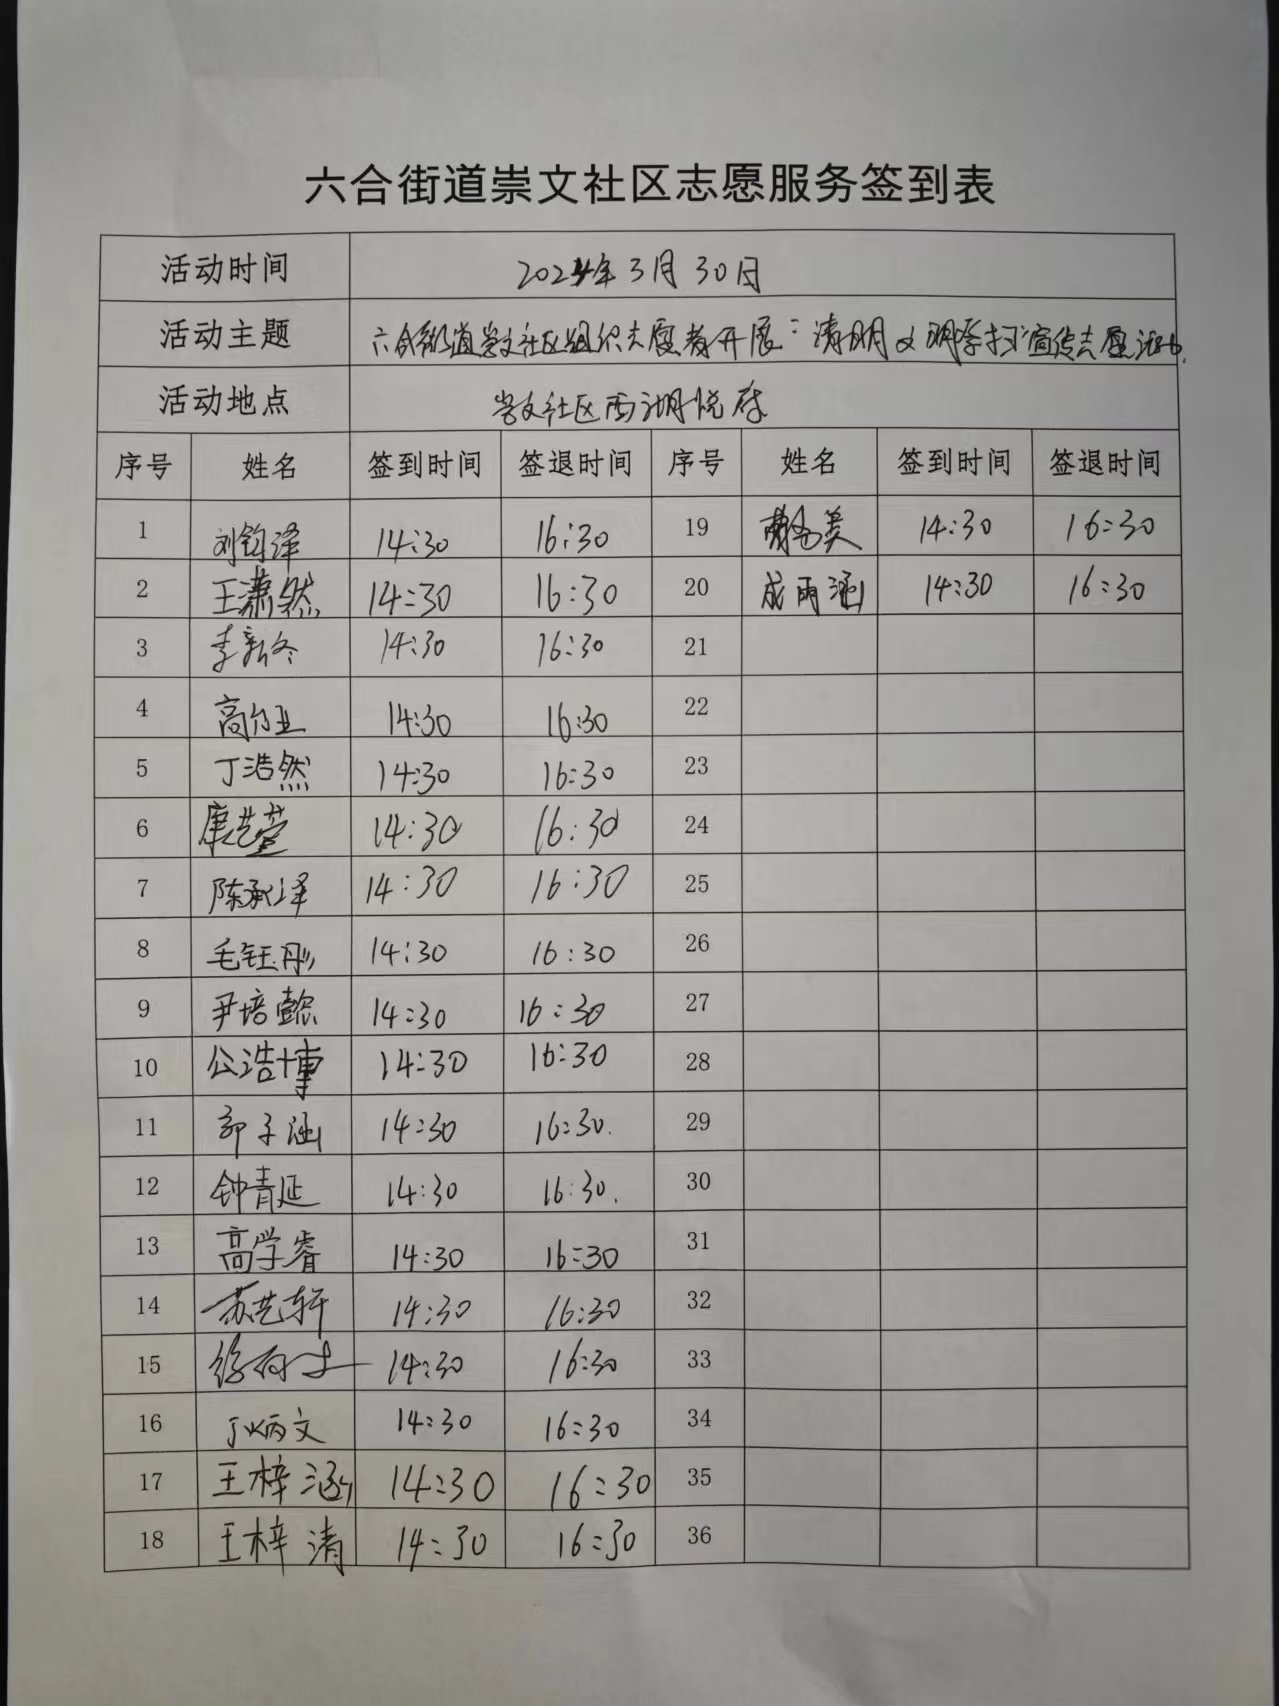 六合街道崇文社区志愿服务签到表
活动时间 2024年3月30日
活动主题 六合街道崇文社区组织志愿者开展：清明文明祭扫宣传志愿活动.
活动地点 崇文社区西湖悦府
序号 姓名 签到时间 签退时间 序号 姓名 签到时间 签退时间
1 刘钧泽 14:30 16:30 19 14:30 16:30
2 王潇然 14:30 16:30 20 成雨涵 14:30 16:30
3 李新冬 14:30 16:30 21
4 14:30 16:30 22
5 丁浩然 14:30 16:30 23
6 康艺萱 14:30 16:30 24
7 陈承泽 14:30 16:30 25
8 毛钰彤 14:30 16:30 26
9 尹培懿 14:30 16:30 27
10 公浩博 14:30 16:30 28
11 郭子涵 14:30 16:30. 29
12 钟青延 14:30 16:30. 30
13 高学睿 14:30 16:30 31
14 苏艺轩 14:30 16:30 32
15 14:30 16:30 33
16 丁炳文 14:30 16:30 34
17 王梓涵 14:30 16:30 35
18 王梓清 14:30 16:30 36